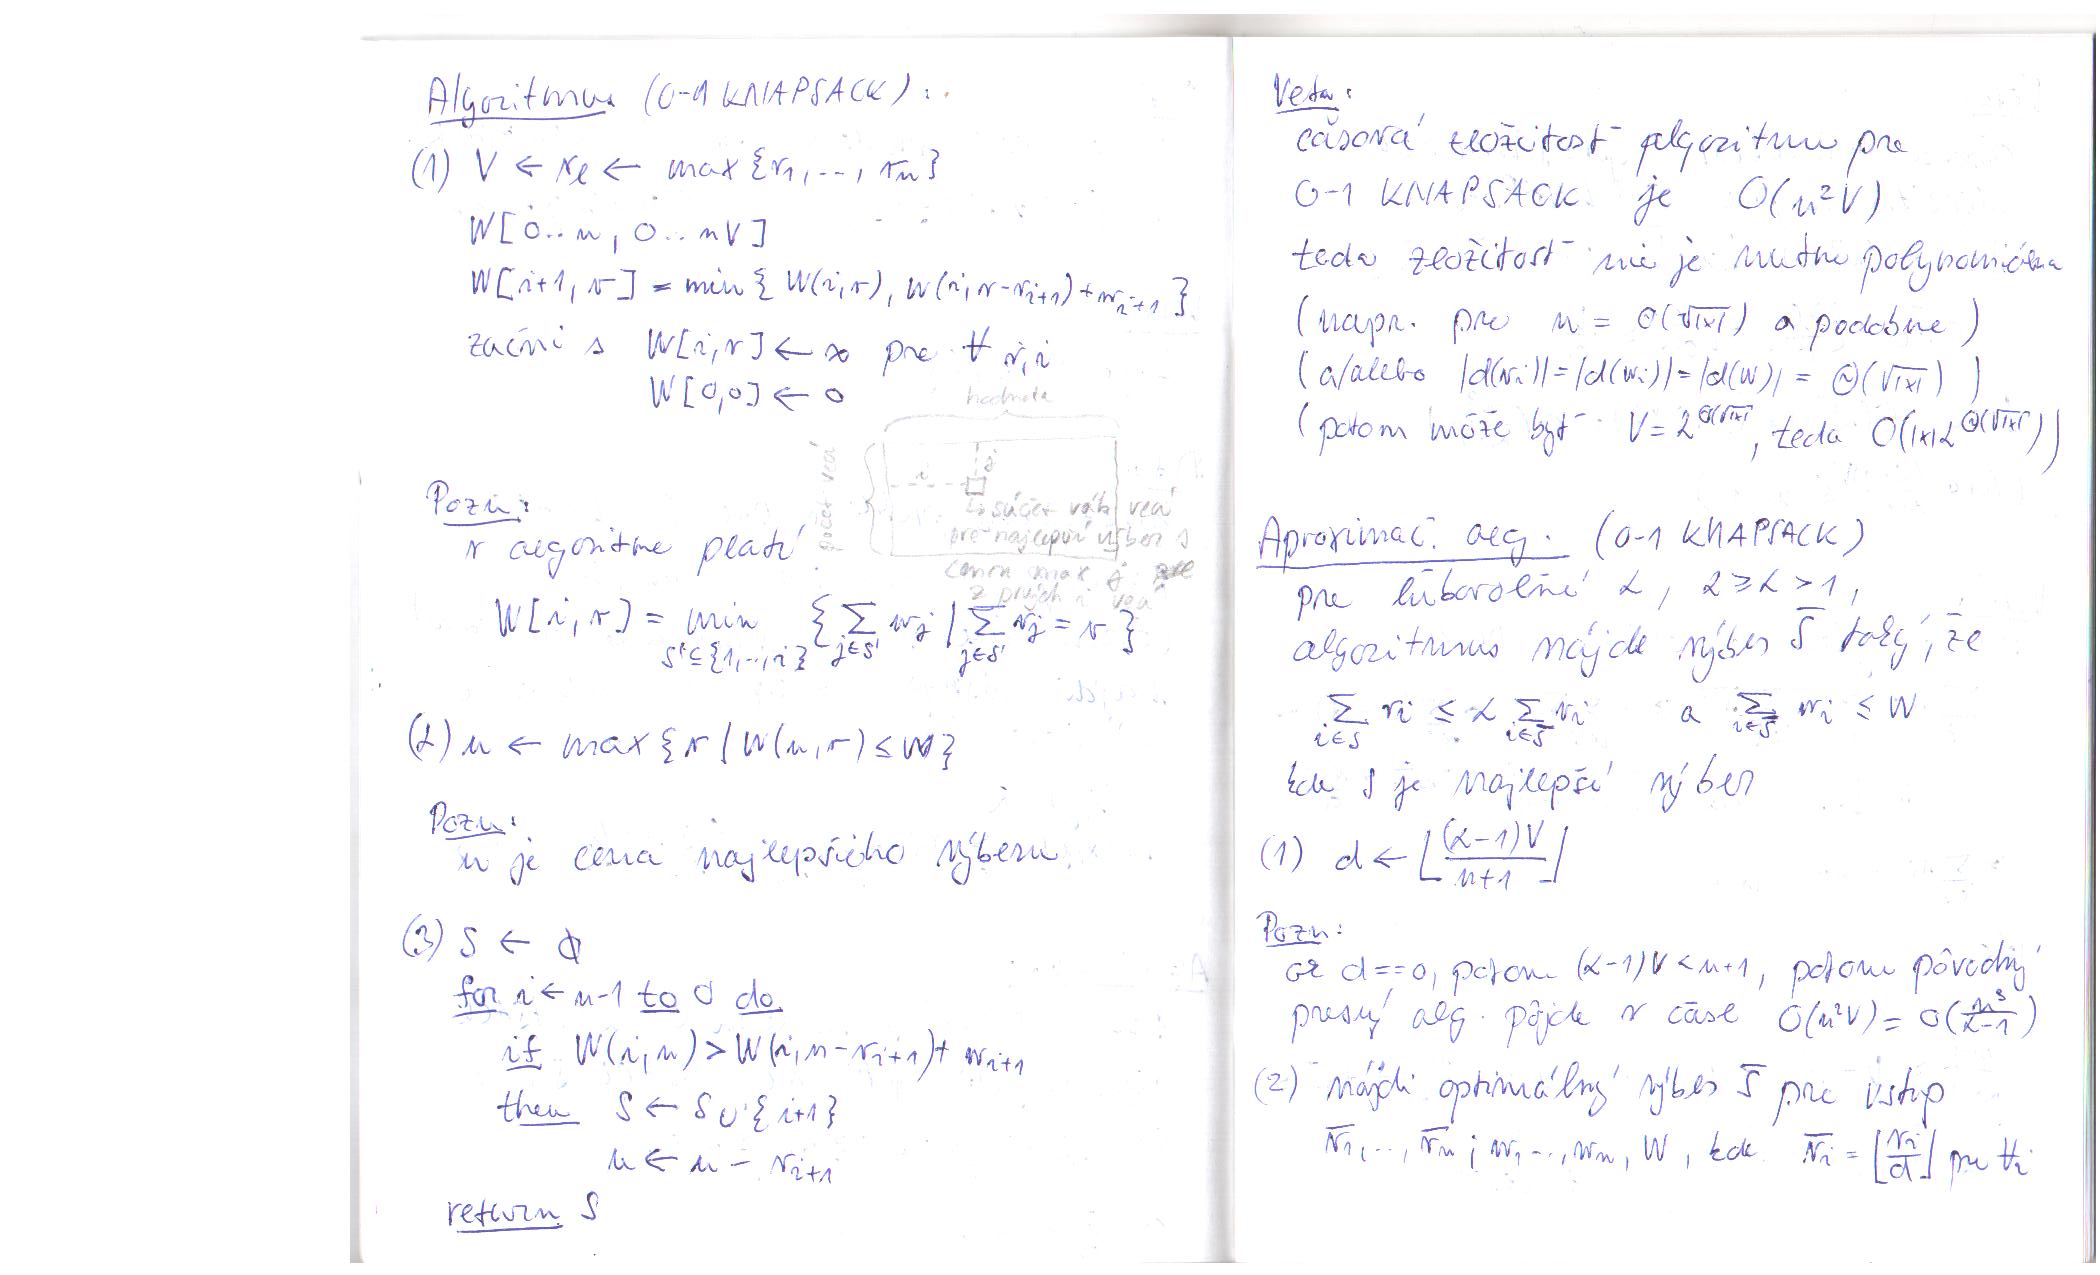 Algoritmus (0-1 KNAPSACK):
(1) V ← v_l ← max{v_1, .., v_n}
W[0..n, 0..nV]
W[i+1, v] = min{W(i,v), W(i,v-v_{i+1})+w_{i+1}}
začni s W[i,v] ← ∞ pre ∀ v,i
W[0,0] ← 0
hodnota
počet vecí
i
j
↳ súčet váh vecí
pre najlepší výber s
cenou max j
z prvých i vecí
Pozn:
v algoritme platí
W[i,v] = min_{S'⊆{1,..,i}} {∑_{j∈S'} w_j | ∑_{j∈S'} v_j = v}
(2) u ← max{v | W(n,v) ≤ W}
Pozn:
u je cena najlepšieho výberu.
(3) S ← ∅
for i ← n-1 to 0 do
if W(i,u) > W(i,u-v_{i+1}) + w_{i+1}
then S ← S ∪ {i+1}
u ← u - v_{i+1}
return S
Veta:
časová zložitosť algoritmu pre
0-1 KNAPSACK je O(n²V)
teda zložitosť nie je nutne polynomiálna
(napr. pre n = Θ(√|x|) a podobne)
(a/alebo |d(v_i)|=|d(w_i)|=|d(W)| = Θ(√|x|))
(potom môže byť V=2^{Θ(√|x|)}, teda O(|x|2^{Θ(√|x|)}))
Aproximač. alg. (0-1 KNAPSACK)
pre ľubovoľné α, 2 ≥ α > 1,
algoritmus nájde výber S̄ taký, že
∑_{i∈S} v_i ≤ α ∑_{i∈S̄} v_i a ∑_{i∈S̄} w_i ≤ W
kde S je najlepší výber
(1) d ← ⌊(α-1)V/(n+1)⌋
Pozn:
ak d==0, potom (α-1)V < n+1, potom pôvodný
presný alg. pôjde v čase O(n²V) = O(n³/(α-1))
(2) nájdi optimálny výber S̄ pre vstup
v̄_1,..,v̄_n; w_1..,w_n, W, kde v̄_i = ⌊v_i/d⌋ pre ∀i